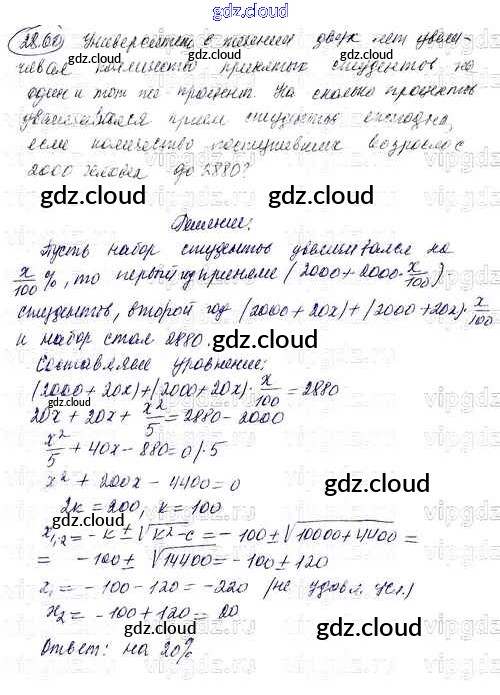 gdz.cloud
28.60 Университет в течении двух лет увели-
чивал количество принятых студентов на
gdz.cloud
один и тот же процент. На сколько процентов
gdz.cloud
увеличивался прием студентов ежегодно,
если количество поступивших возросло с
2000 человек до 2880?
gdz.cloud
Решение:
gdz.cloud
Пусть набор студентов увеличивался на
x/100 %, то первый год приняли (2000+2000·x/100)
студентов, второй год (2000+20x)+(2000+20x)·x/100
и набор стал 2880.
gdz.cloud
Составляем уравнение:
(2000+20x)+(2000+20x)·x/100=2880
20x+20x+x²/5=2880-2000
gdz.cloud
x²/5+40x-880=0/·5
x²+200x-4400=0
gdz.cloud
2k=200, k=100
x1,2=-k±√k²-c=-100±√10000+4400=
gdz.cloud
=-100±√14400=-100±120
x1=-100-120=-220 (не удовл. усл.)
x2=-100+120=20
gdz.cloud
Ответ: на 20%
gdz.cloud